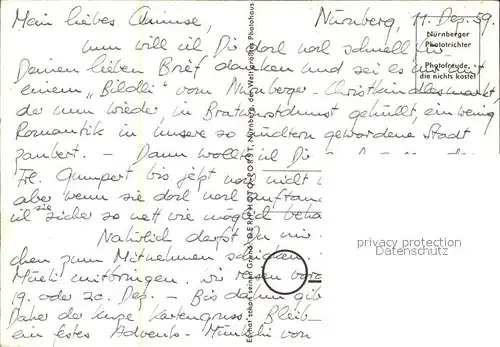 Mein liebes
Nürnberg, 11. Dez. 59.
nun will ich Dir doch noch schnell für
Deinen lieben Brief danken und sei es nur mit
einem „Bildli" vom Nürnberger-Christkindlesmarkt
der nun wieder, in Bratwurstdunst gehüllt, ein wenig
Romantik in unsere so nüchtern gewordene Stadt
zaubert. – Dann wollte ich Dir
Frl. Gumpert bis jetzt noch nicht
aber wenn sie doch noch auftau
ich sie sicher so nett wie möglich beha
Natürlich darfst Du mir
chen zum Mitnehmen schicken
mitbringen. Wir reisen vora
19. oder 20. Dez. – Bis dahin gib
Daher der kurze Kartengruss. Bleib
ein festes Advents- von
Nürnberger
Phototrichter
Photofreude,
die nichts kostet
Er hat schon seinen Grund: DER PHOTO-PORST, Nürnberg, der Welt größtes Photohaus
privacy protection
Datenschutz